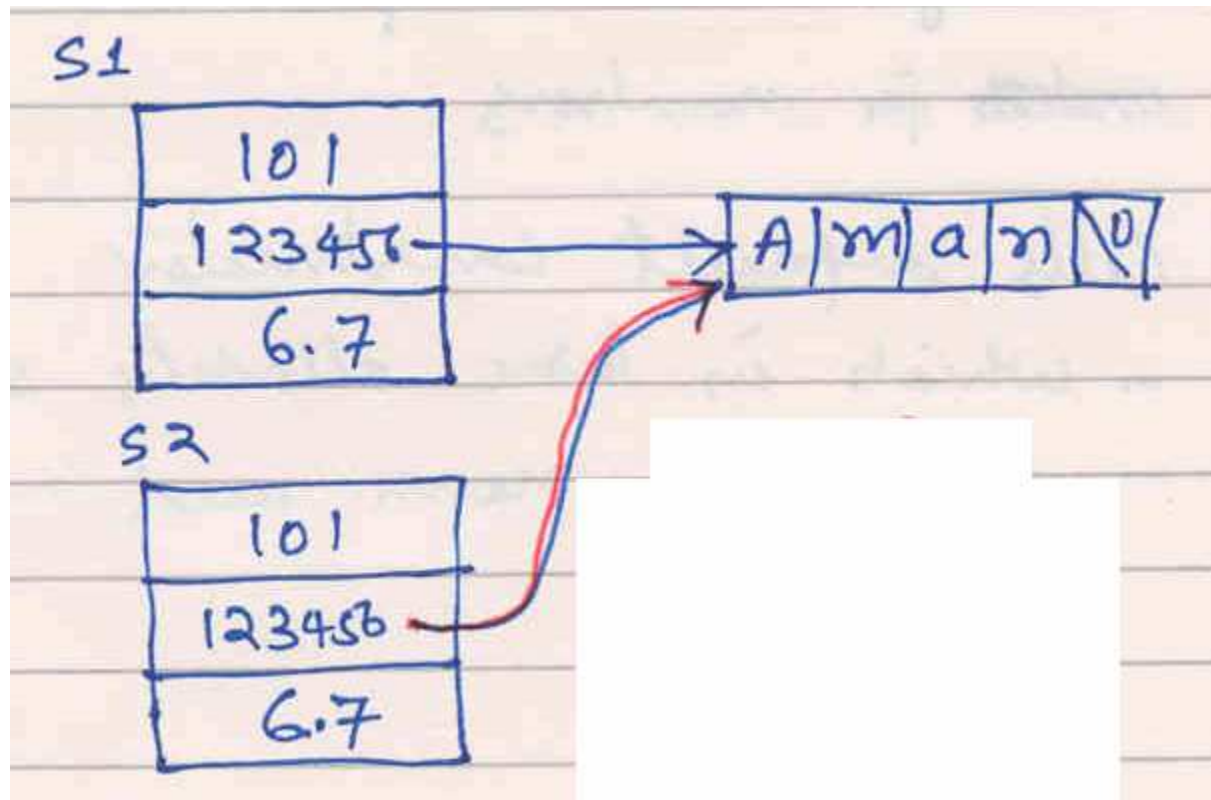 S1
101
123456
A m a n \0
6.7
S2
101
123456
6.7